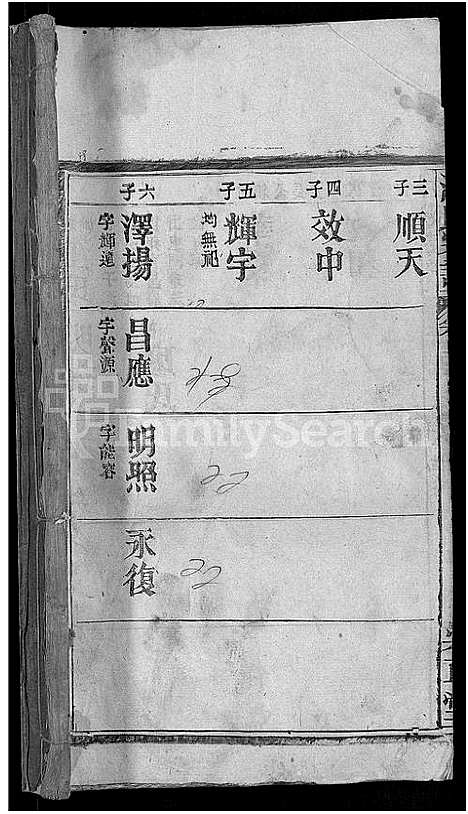 三子
順天
四子
效中
五子
輝宇
均無祀
六子
澤揚
字輝遠
昌應
字聲源
明照
字能容
永復
22
22
FamilySearch